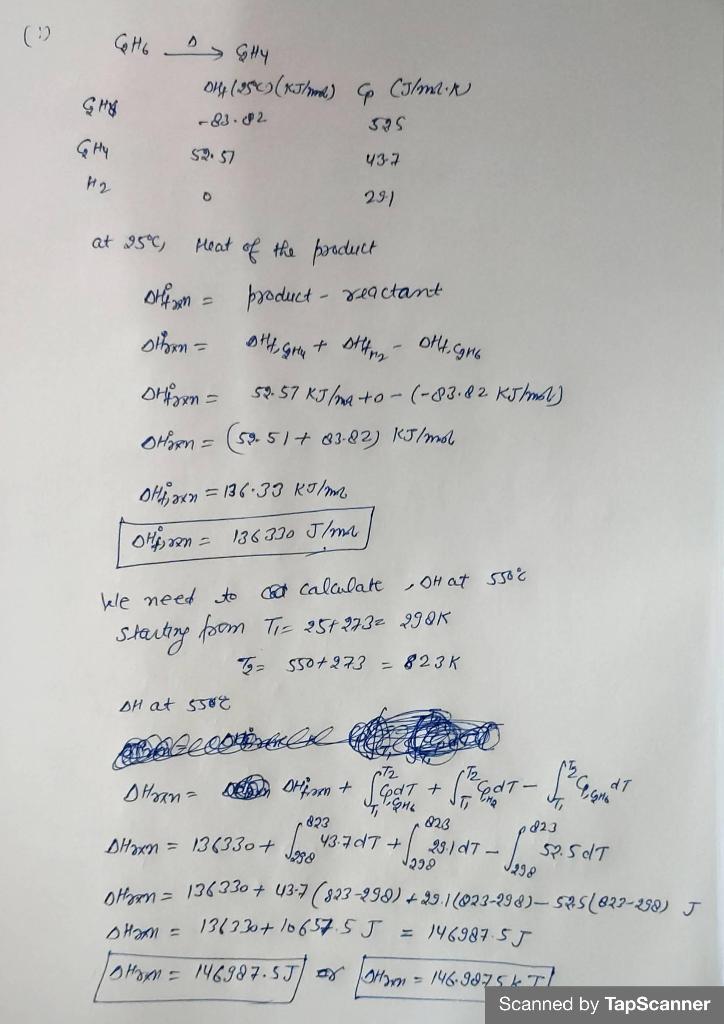 (i)
C2H6 Δ→ C2H4
ΔHf (25°C) (KJ/mol) Cp (J/mol·K)
C2H6 -83.82 52.5
C2H4 52.51 43.7
H2 0 29.1
at 25°C, Heat of the product
ΔH°f,rxn = product - reactant
ΔH°rxn = ΔHf,C2H4 + ΔHf,H2 - ΔHf,C2H6
ΔH°rxn = 52.51 KJ/mol + 0 - (-83.82 KJ/mol)
ΔH°rxn = (52.51 + 83.82) KJ/mol
ΔH°f,rxn = 136.33 KJ/mol
ΔH°f,rxn = 136330 J/mol
We need to calculate, ΔH at 550°C
starting from T1 = 25+273 = 298K
T2 = 550+273 = 823K
ΔH at 550°C
ΔHrxn = ΔH°f,rxn + ∫T1T2 Cp,C2H4 dT + ∫T1T2 Cp,H2 dT - ∫T1T2 Cp,C2H6 dT
ΔHrxn = 136330 + ∫298823 43.7 dT + ∫298823 29.1 dT - ∫298823 52.5 dT
ΔHrxn = 136330 + 43.7 (823-298) + 29.1 (823-298) - 52.5 (823-298) J
ΔHrxn = 136330 + 10657.5 J = 146987.5 J
ΔHrxn = 146987.5 J or ΔHrxn = 146.9875 KJ
Scanned by TapScanner